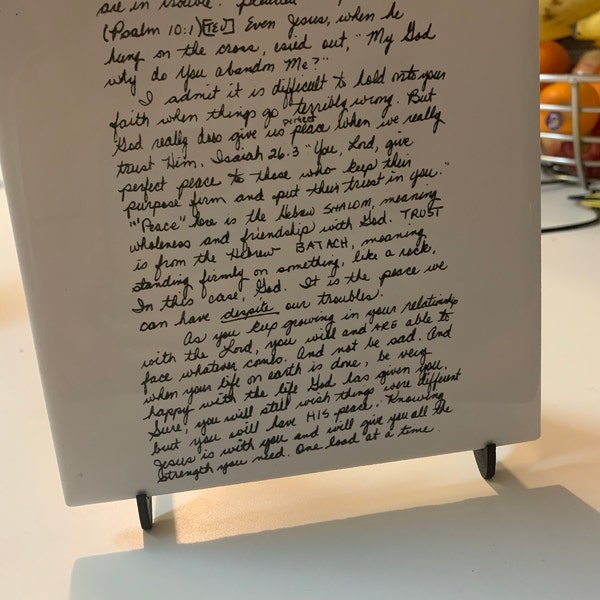 are in trouble.
(Psalm 10:1)[TEV] Even Jesus, when he
hung on the cross, cried out, "My God
why do you abandon Me?"
I admit it is difficult to hold onto your
faith when things go terribly wrong. But
God really does give us perfect peace when we really
trust Him. Isaiah 26:3 "You, Lord, give
perfect peace to those who keep their
purpose firm and put their trust in you."
"Peace" here is the Hebrew SHALOM, meaning
wholeness and friendship with God. TRUST
is from the Hebrew BATACH, meaning
standing firmly on something, like a rock,
In this case, God. It is the peace we
can have despite our troubles.
As you keep growing in your relationship
with the Lord, you will and ARE able to
face whatever comes. And not be sad. And
when your life on earth is done, be very
happy with the life God has given you.
Sure, you will still wish things were different
but you will have HIS peace. Knowing
Jesus is with you and will give you all the
strength you need. One load at a time.